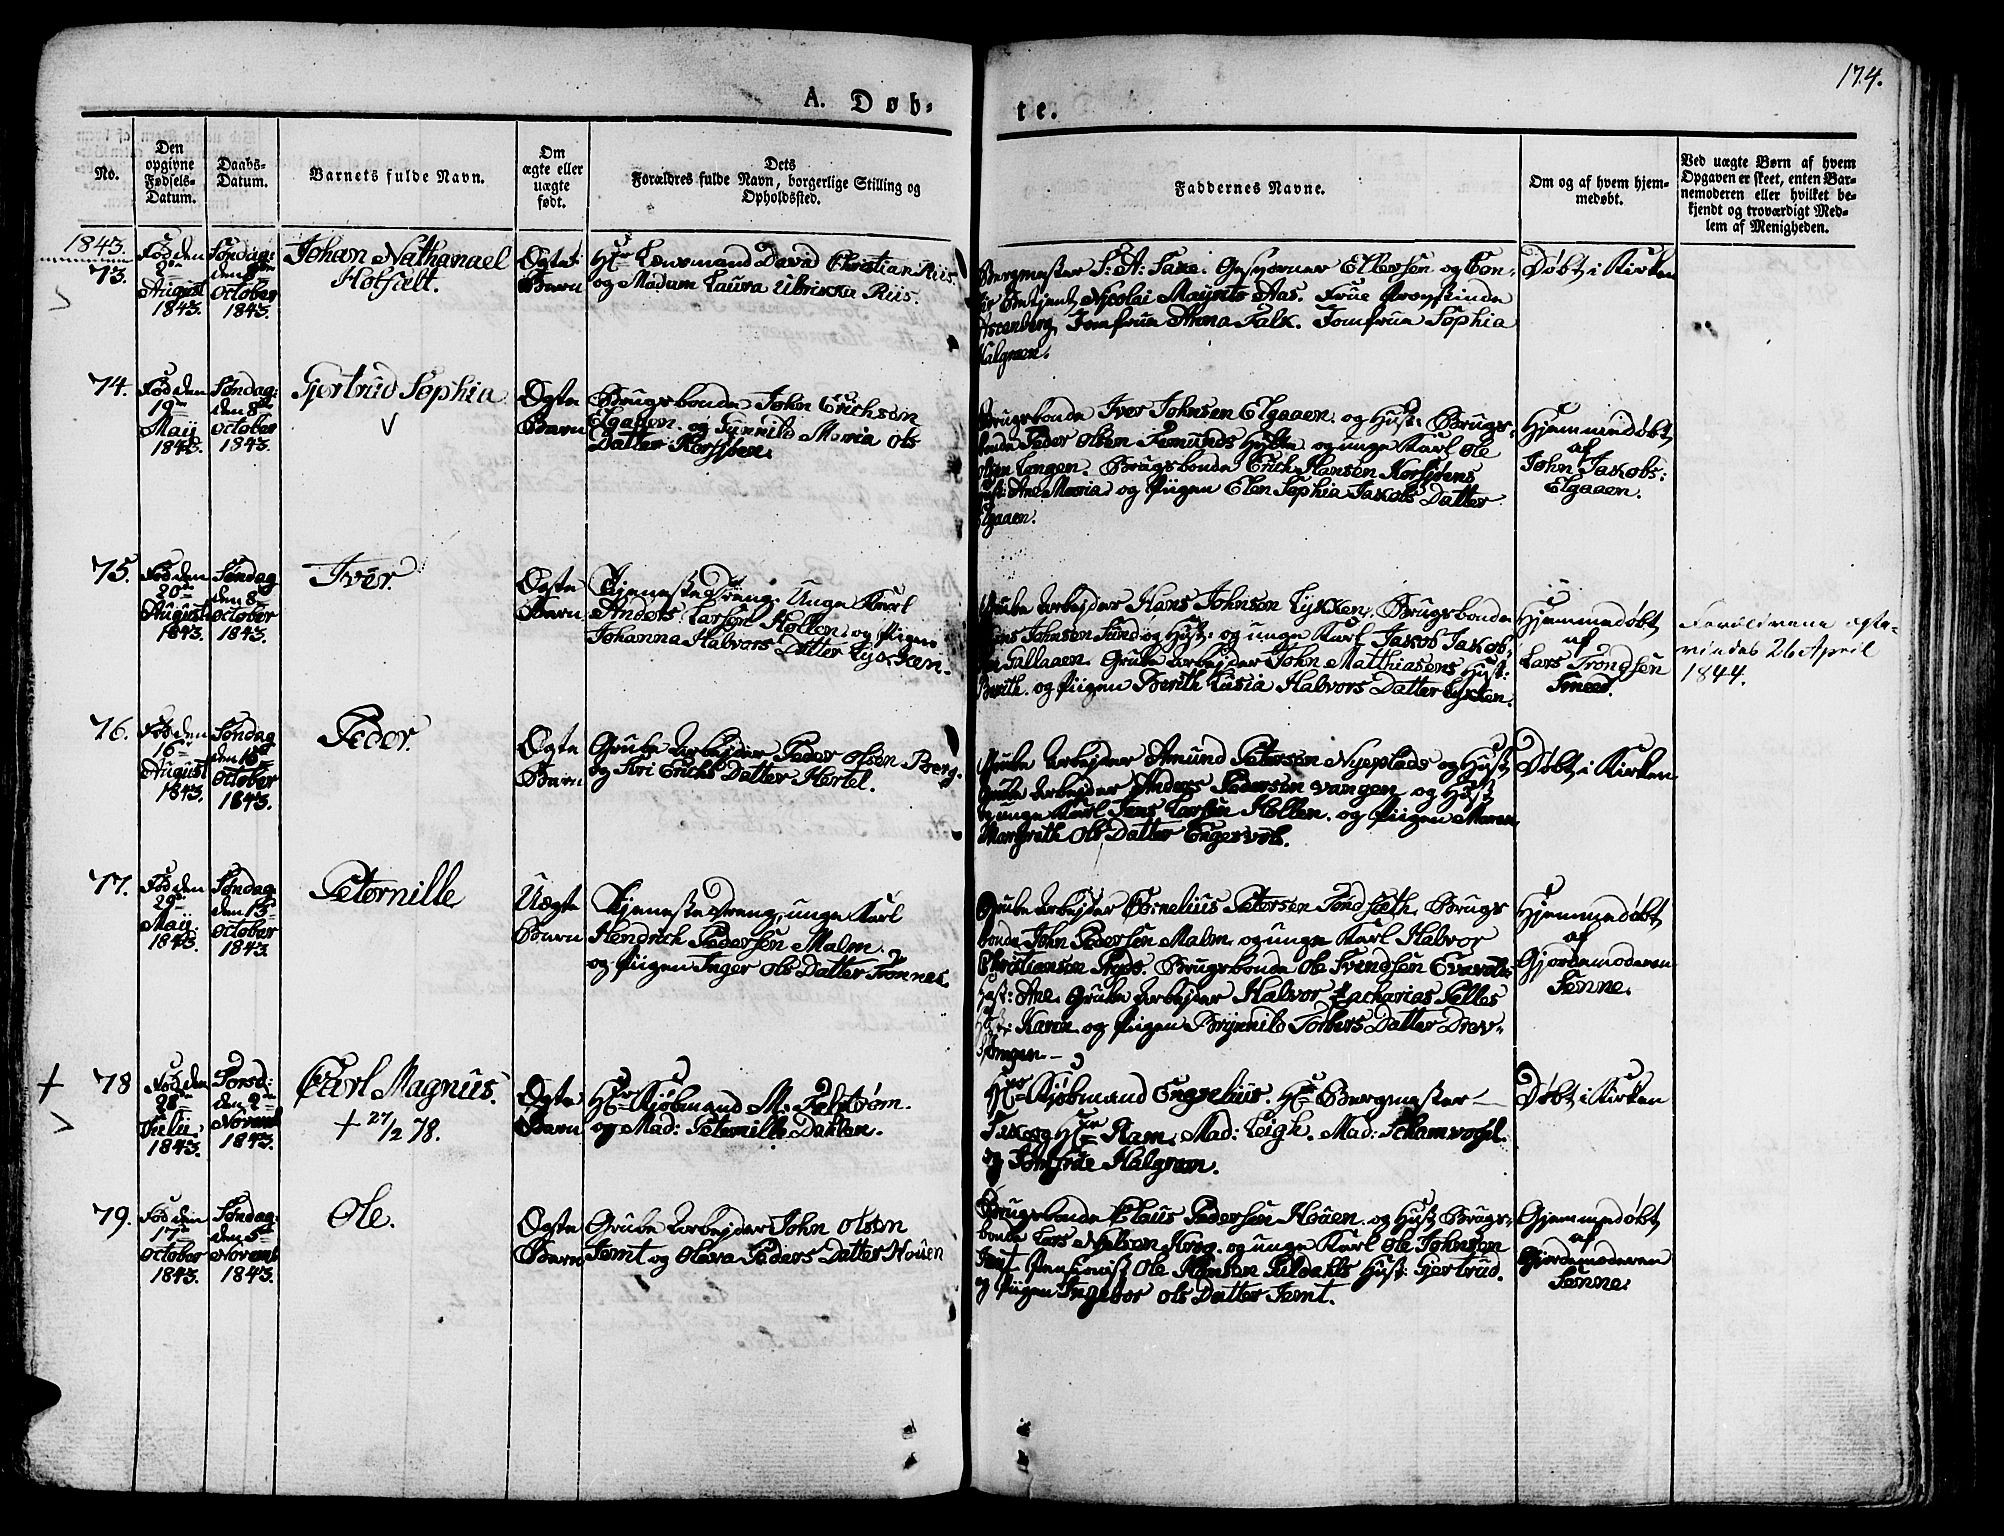 174.
A. Døb-
te.
No.
Den
opgivne
Fødsels-
Datum.
Daabs-
Datum.
Barnets fulde Navn.
Om
ægte eller
uægte
født.
Dets
Forældres fulde Navn, borgerlige Stilling og
Opholdssted.
Faddernes Navne.
Om og af hvem hjem-
medøbt.
Ved uægte Børn af hvem
Opgaven er skeet, enten Bar-
nemoderen eller hvilket be-
kjendt og troværdigt Med-
lem af Menigheden.
1843.
73.
Fød den
2den
August
1843.
Søndag
den 8de
October
1843.
Johan Nathanael
Holfalt.
Ægte
Barn
Hr Lensmand David Christian Riis.
og Madam Laura Ulrikka Riis.
Bergmester S: A:
Betjent Nicolai Mauritz Aas. Frue
Jomfrue Anna Falk. Jomfrue Sophia
Døbt i Kirken
74.
Fød den
19de
Maij
1843.
Søndag:
den 8de
October
1843.
Gjertrud Sophia
V
Ægte
Barn
Brugsbonde John Erichsen
Elgaaen. og Gunnild Maria Ols
Datter
Brugsbonde Iver Johnsen Elgaaen og Hust: Brugs-
bonde Peder Olsen Femunds Hytte og unge Karl Ole
Olsen Langen. Brugsbonde Erich Hansen
Ane Maria og Piigen Elen Sophia Jakobs Datter
Elgaaen.
Hjemmedøbt
af
John Jakobs:
Elgaaen.
75.
Fød den
20de
August
1843.
Søndag
den 8de
October
1843.
Iver.
Ægte
Barn
Tjenestedreng. Unge Karl
Anders Larsen Holten. og Piigen
Johanna Halvors Datter Lykken.
Grube Arbejder Hans Johnsen Lykken. Brugsbonde
Jens Johnsen Sund og Hust: og unge Karl Jakob Jakob-
sen Gallaaen. Grube Arbejder John Matthiasens Hust:
Berith. og Piigen Berith Lusia Halvors Datter Lykken.
Hjemmedøbt
af
Lars Trondsen
Smed.
Forældrene ægte-
viedes 26 April
1844.
76.
Fød den
16de
August
1843.
Søndag
den 15de
October
1843.
Peder.
Ægte
Barn
Grube Arbejder Peder Olsen Berg.
og Siri Erichs Datter Hertel.
Grube Arbejder Amund Petersen Nyeplads og Hust
Grube Arbejder Anders Pedersen Vangen og Hust
og unge Karl Jens Larsen Holten. og Piigen Maren
Margreth Ols Datter Engevold.
Døbt i Kirken
77.
Fød den
29de
Maij
1843.
Søndag
den 15de
October
1843
Peternille
Uægte
Barn
Tjenestedreng, unge Karl
Hendrich Pedersen Malm.
og Piigen Inger Ols Datter Tromnes.
Grube Arbejder Cornelius Petersen Tondsæth. Brugs
bonde John Pedersen Malm. og unge Karl Halvor
Christiansen Brugsbonde Ole Svendsen
Hust: Ane. Grube Arbejder Halvor Zacharias
Hust: Karen og Piigen Brynnild Torbers Datter Drev-
Hjemmedøbt
af
Gjordemoderen
Tenne.
+
78
Fød den
28de
Julii
1843.
Torsd:
den 2den
Novemb
1843.
Carl Magnus.
+ 27/2 78.
Ægte
Barn
Hr Kjøbmand M: Falstrøm.
og Mad: Peternille Dahlen.
Hr Kjøbmand Engzelius. Hr Bergmester
og Hr Ram. Mad: Leigh. Mad: Schamvogel.
og Jomfrue Halgreen.
Døbt i Kirken
79.
Fød den
17de
October
1843.
Søndag
den 5te
Novemb
1843.
Ole.
Ægte
Barn
Grube Arbejder John Olsen
Jemt og Oleva Peders Datter Houen
Brugsbonde Claus Pedersen Houen. og Hust Brugs-
bonde Lars Nielsen Krog. og unge Karl Ole Johnsen
Jemt. Ole Hansen Hust: Gjertrud.
og Piigen Ingebor Ols Datter Jemt.
Hjemmedøbt
af
Gjordemoderen
Tenne.